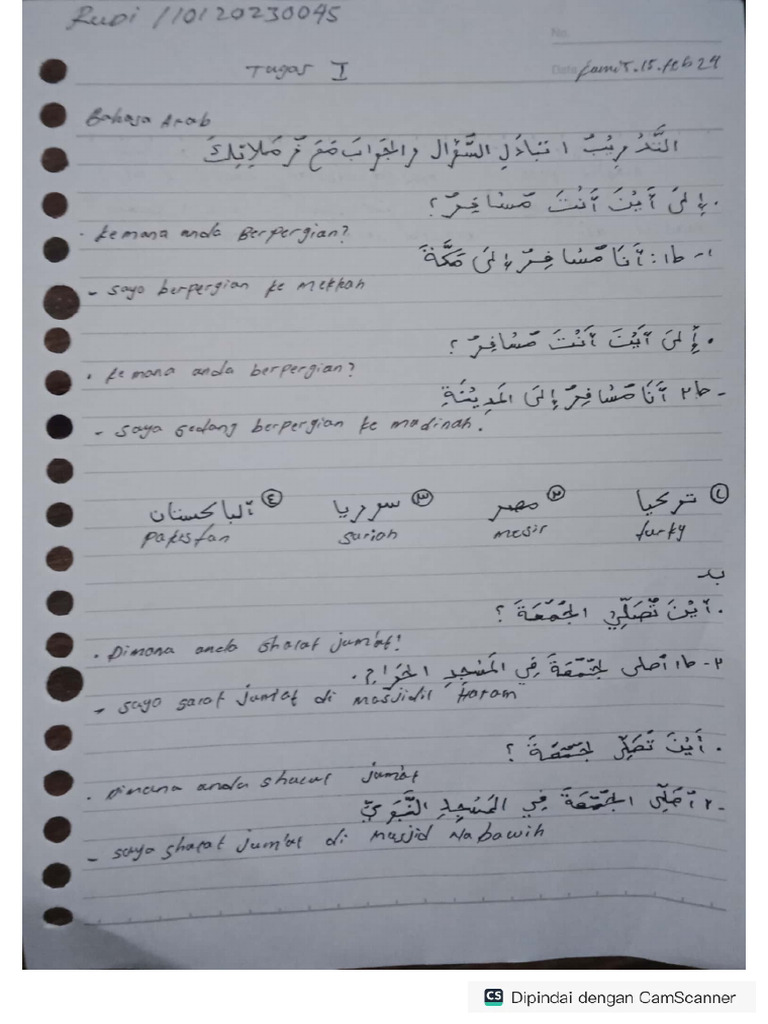 Rudi /10120230045
No.
Date kamis.15.feb 24
Tugas I
Bahasa Arab
التَّدْرِيْبُ ١ تَبَادَلِ السُّؤَال والجَوَابَ مَعَ زُمَلائِكَ
. إِلىَ أَيْنَ أَنْتَ مُسَافِرٌ؟
. kemana anda Berpergian?
١- ط١: أَنَا مُسَافِرٌ إِلىَ مَكَّةَ
- saya berpergian ke Mekkah
. إِلىَ أَيْنَ أَنْتَ مُسَافِرٌ؟
. kemana anda berpergian?
- ط٢ أَنَا مُسَافِرٌ إِلىَ المَدِيْنَةِ
- saya sedang berpergian ke madinah.
① تركيا ② مصر ③ سوريا ④ الباكستان
turky mesir suriah pakistan
. أَيْنَ تُصَلِّي الجُمُعَةَ ؟
. Dimana anda sholat jum'at!
٢- ط١ أصلى لجُمُعَةَ فِي المَسْجِدِ الحَرَامِ.
- saya salat jum'at di masjidil Haram
. أَيْنَ تُصَلِّ لجُمُعَةَ ؟
. Dimana anda shalat jumat
- ٢ أُصَلِّى الجُمُعَةَ فِي المَسْجِدِ النَّبَوِيّ
- saya shalat jum'at di Masjid Nabawih
CS Dipindai dengan CamScanner